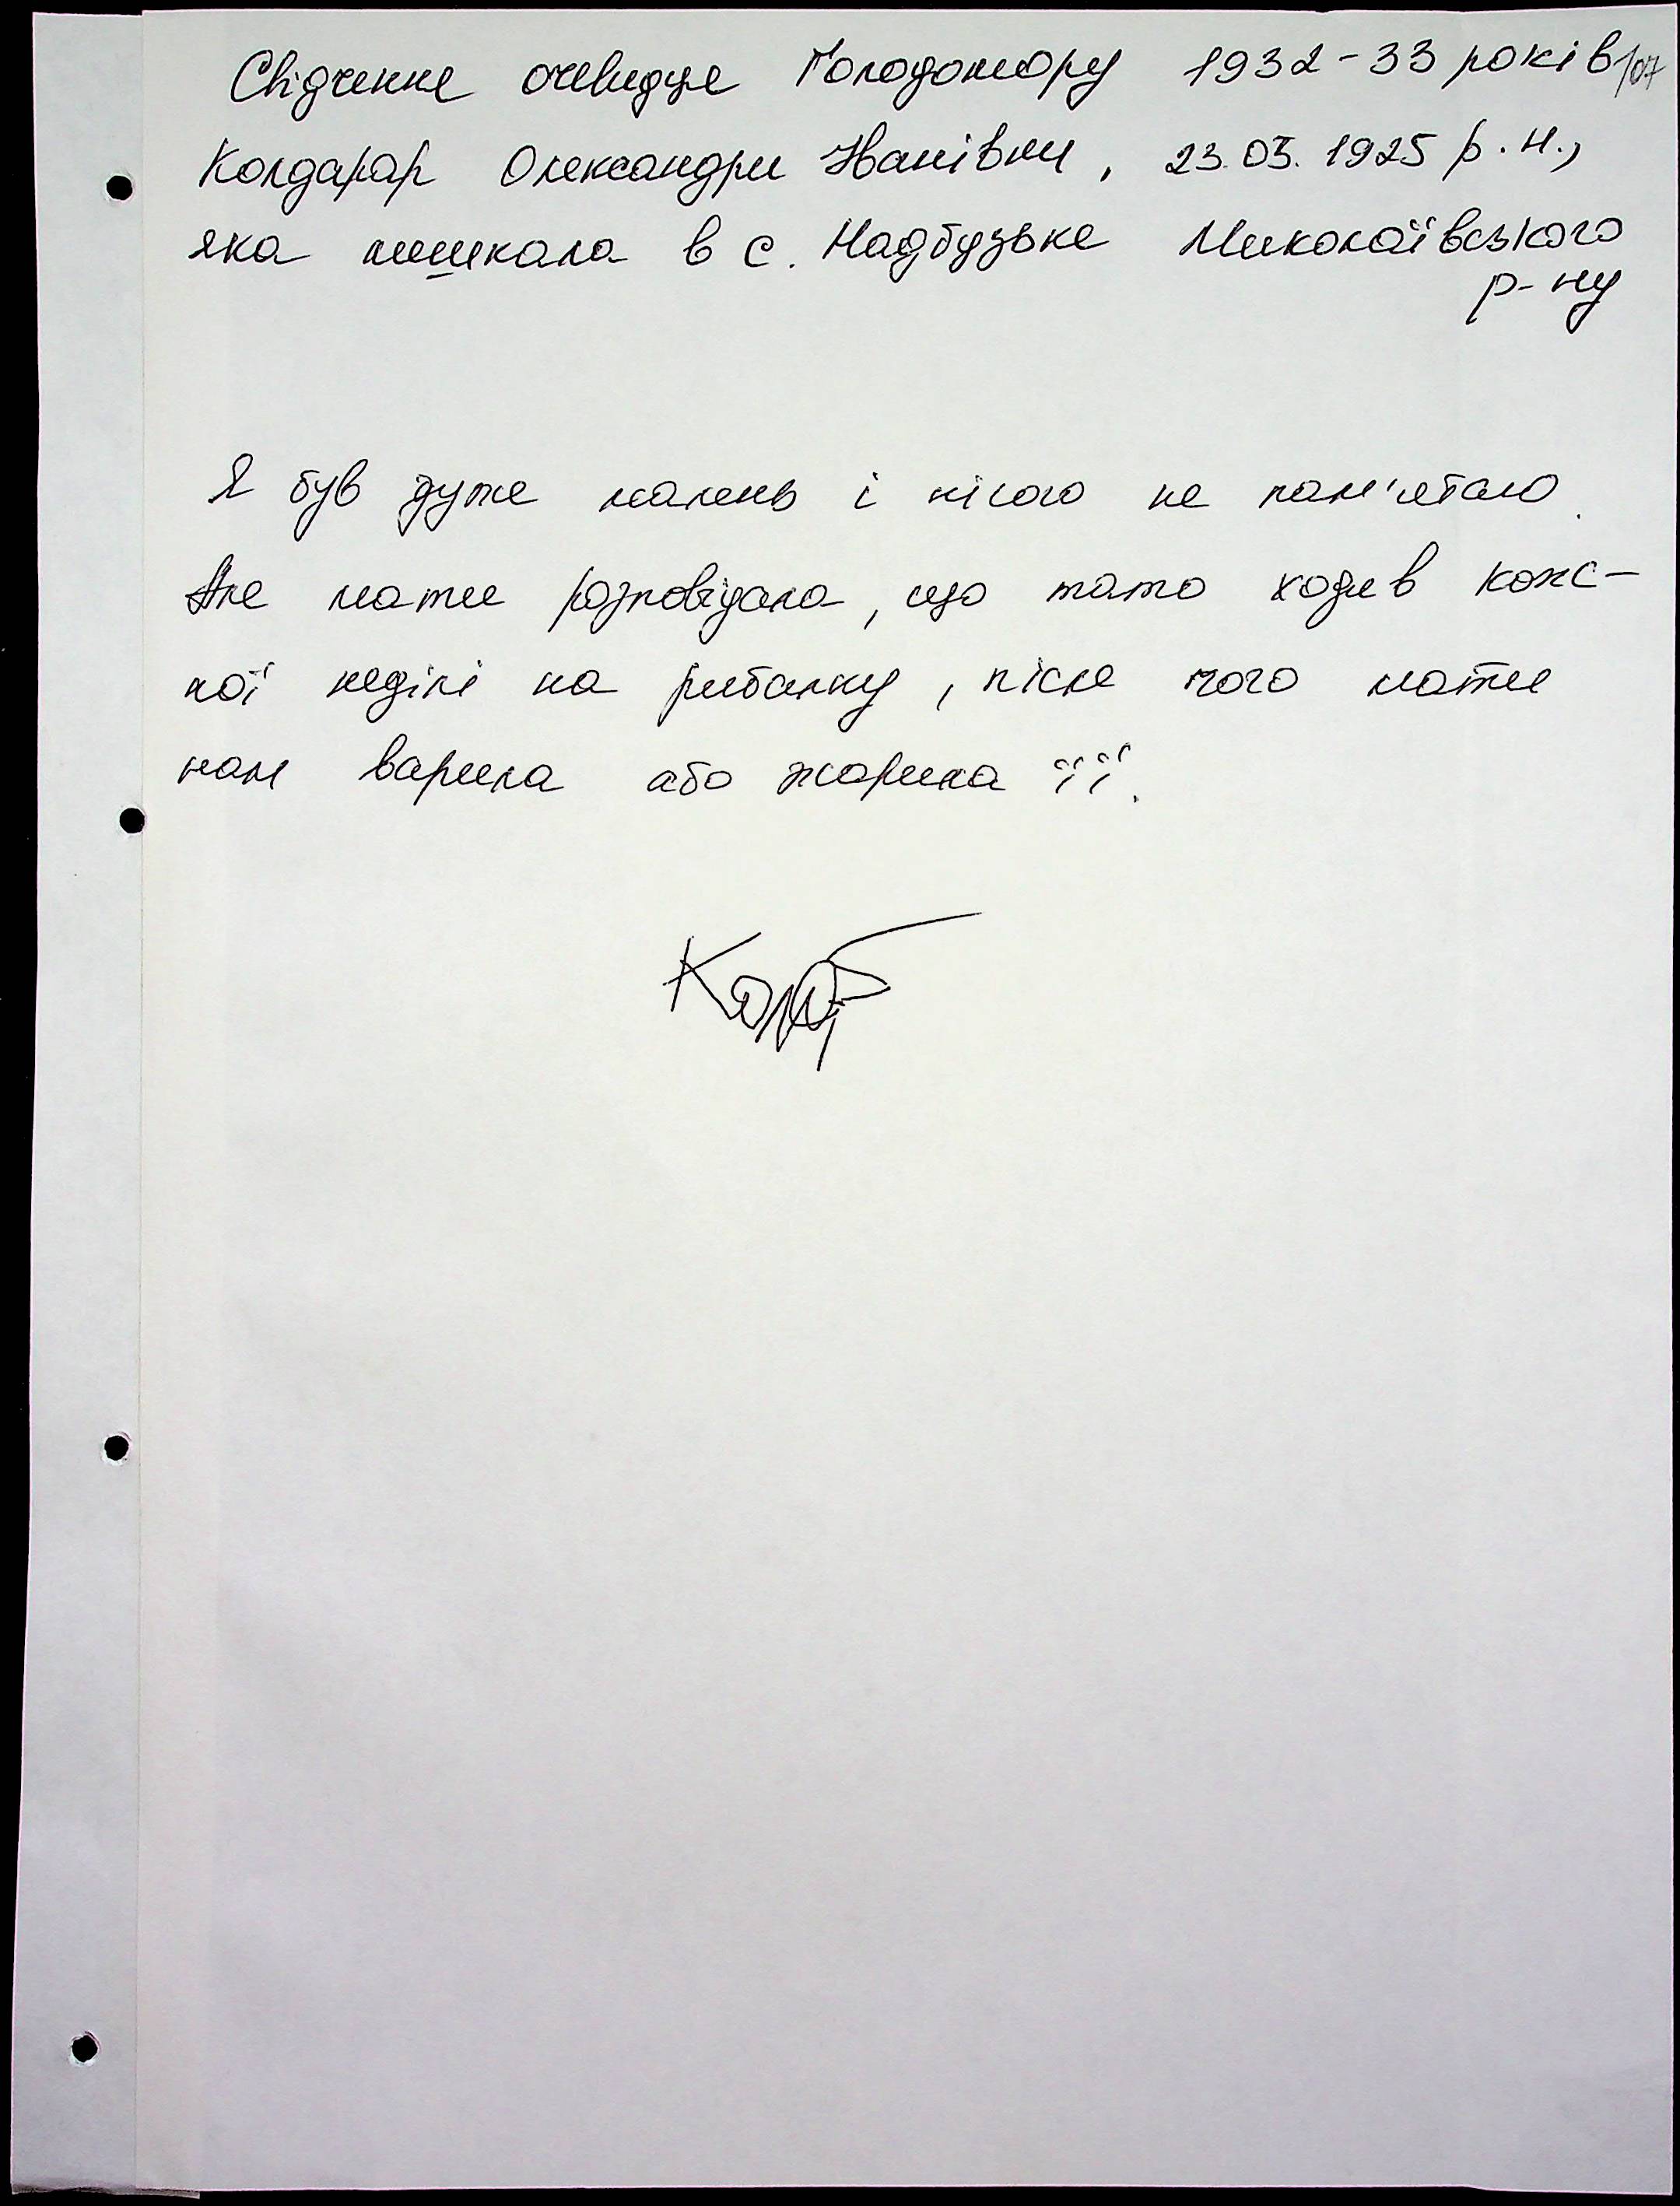 Свідчення очевидця Голодомору 1932-33 років 107
Колдарар Олександри Іванівни, 23.03.1925 р.н.,
яка мешкала в с. Надбузьке Миколаївського
р-ну
Я був дуже малень і нічого не пам'ятаю.
Але мати розповідала, що тато ходив кож-
ної неділі на рибалку, після чого мати
нам варила або жарила її.